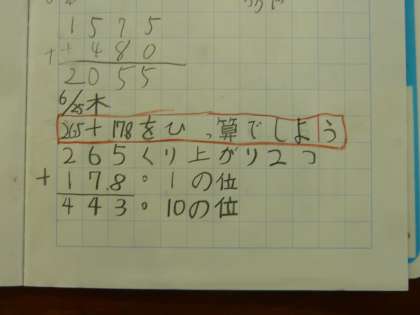 1575
+480
2055
6/25木
265+178をひっ算でしよう
265くり上がり2つ
+178。1の位
443。10の位